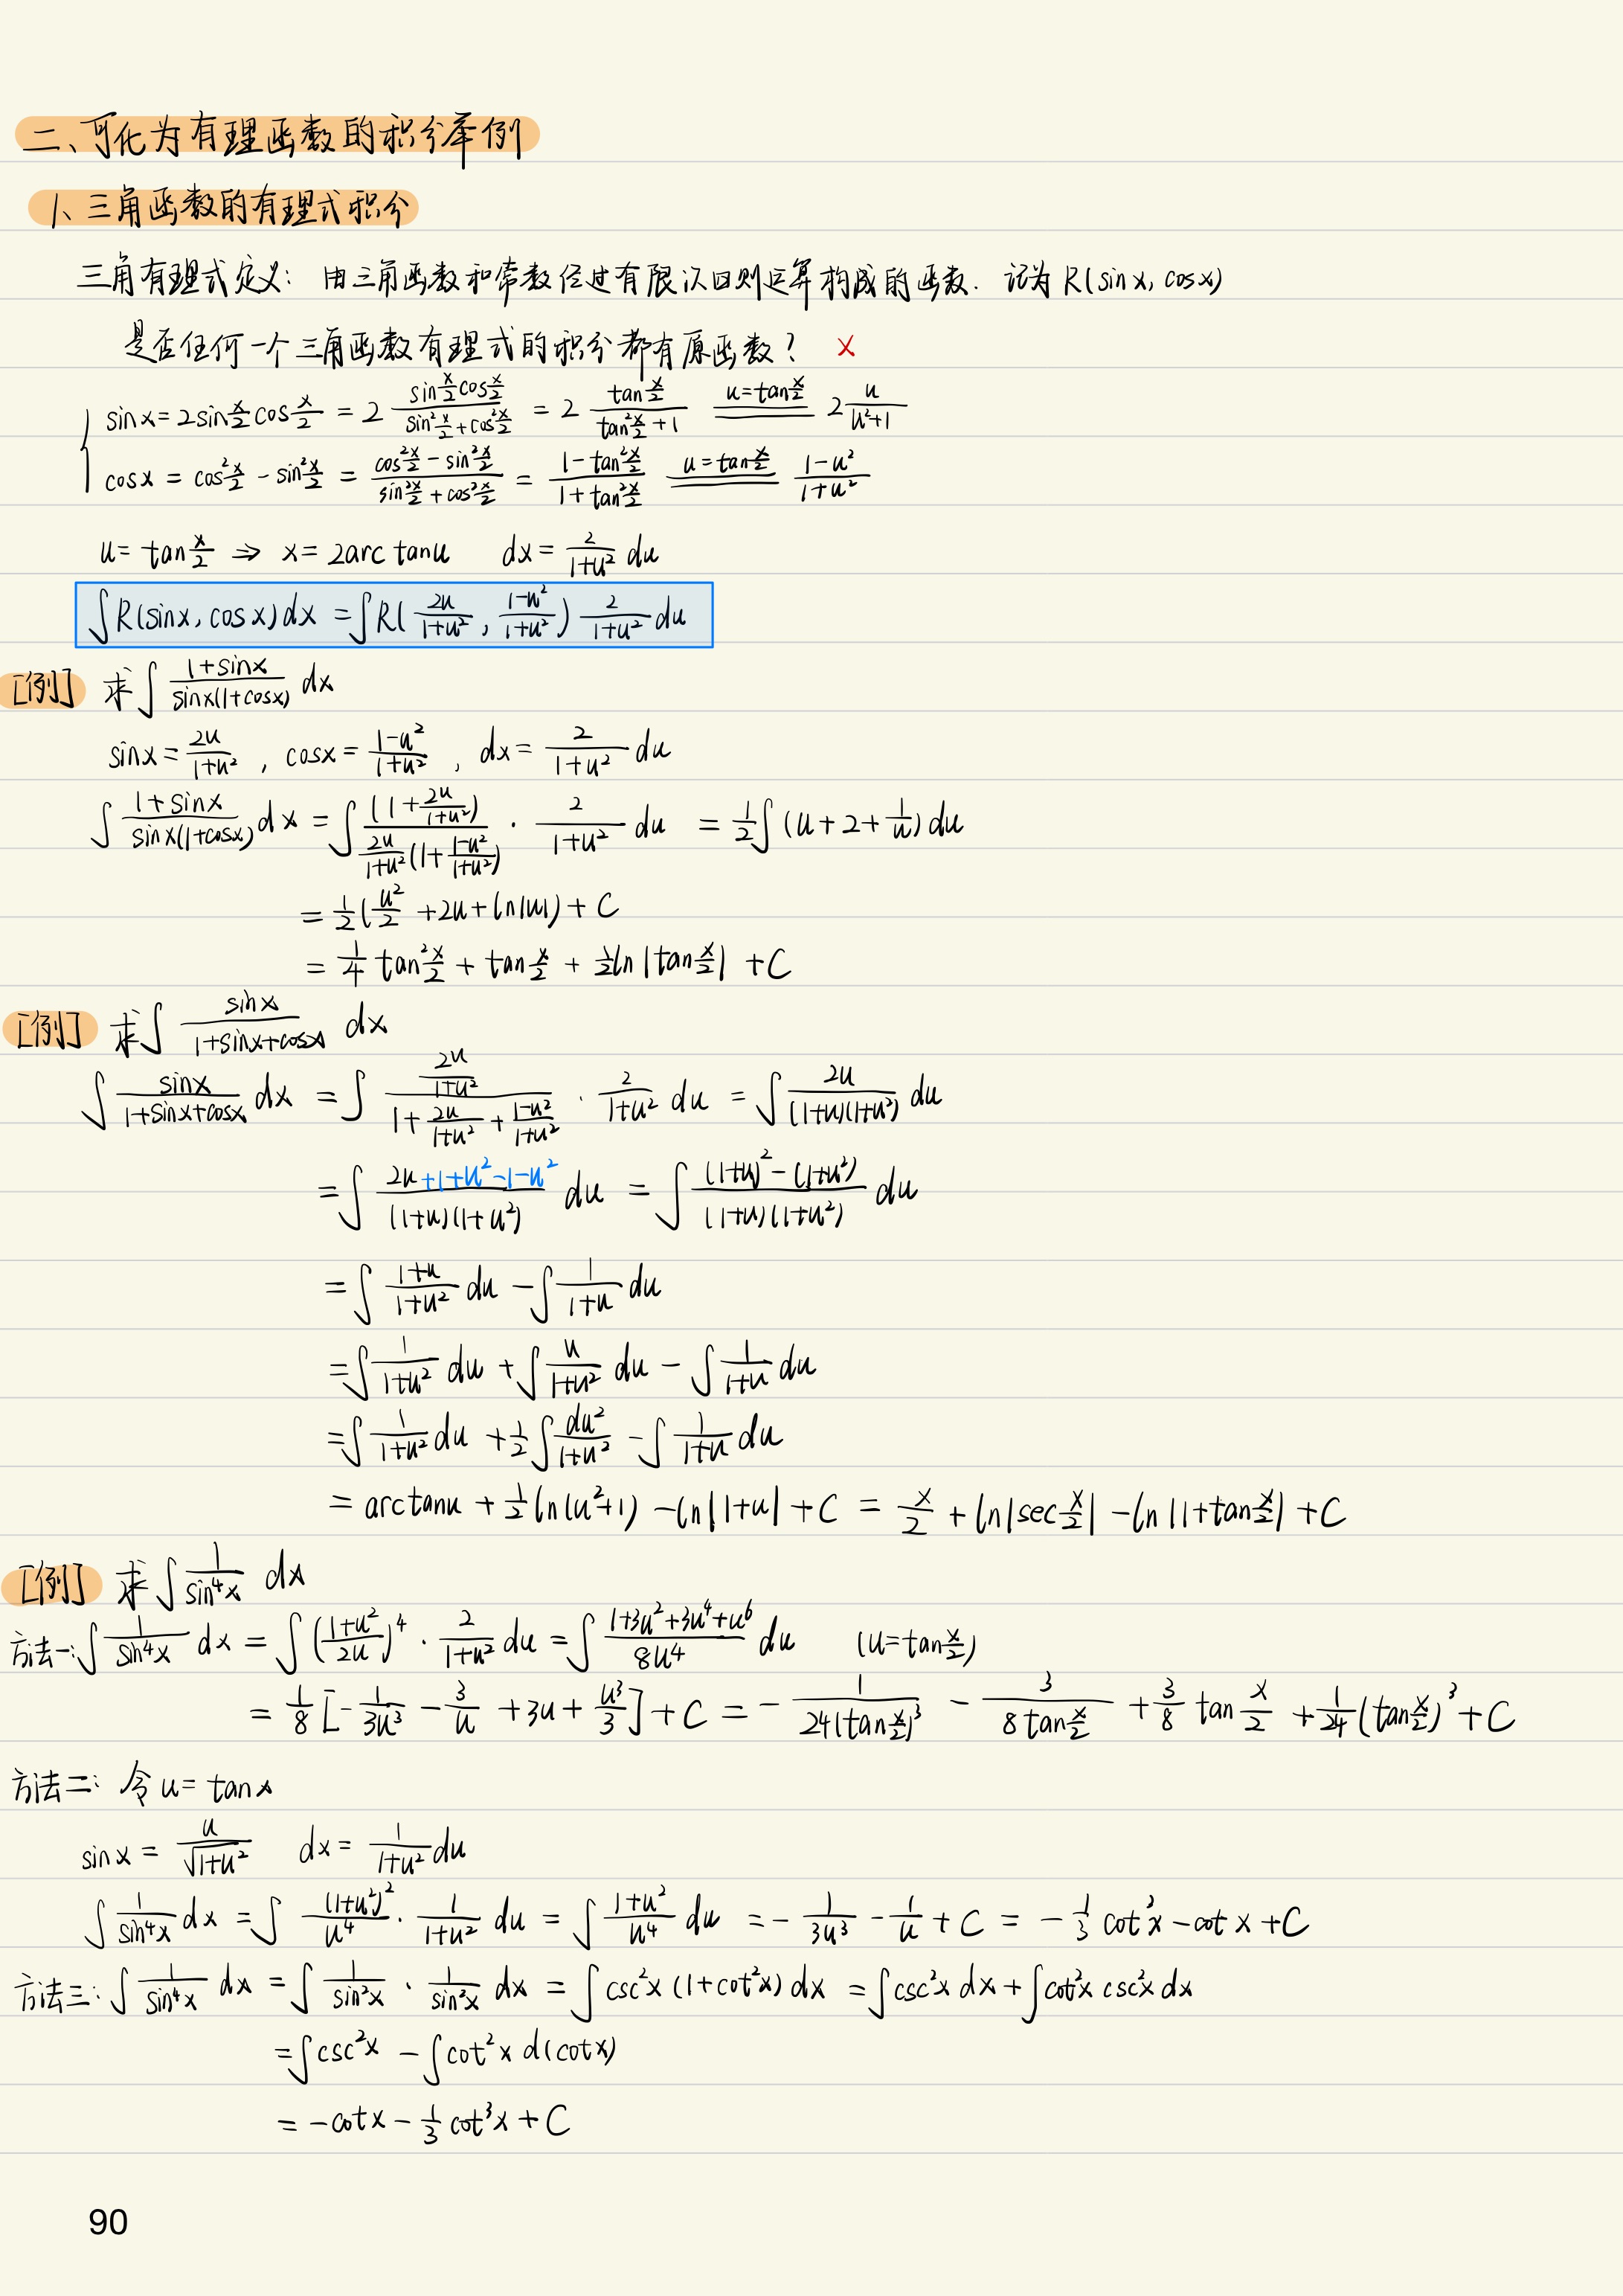 二、可化为有理函数的积分举例
1、三角函数的有理式积分
三角有理式定义: 由三角函数和常数经过有限次四则运算构成的函数. 记为 R(sin x, cos x)
是否任何一个三角函数有理式的积分都有原函数? ×
sin x = 2 sin x/2 cos x/2 = 2 (sin x/2 cos x/2)/(sin² x/2 + cos² x/2) = 2 (tan x/2)/(tan² x/2 + 1) (u = tan x/2)== 2 u/(u²+1)
cos x = cos² x/2 - sin² x/2 = (cos² x/2 - sin² x/2)/(sin² x/2 + cos² x/2) = (1 - tan² x/2)/(1 + tan² x/2) (u = tan x/2)== (1-u²)/(1+u²)
u = tan x/2 ⇒ x = 2arc tan u dx = 2/(1+u²) du
∫R(sin x, cos x)dx = ∫R(2u/(1+u²), (1-u²)/(1+u²)) 2/(1+u²) du
[例] 求 ∫ (1+sin x)/(sin x(1+cos x)) dx
sin x = 2u/(1+u²) , cos x = (1-u²)/(1+u²) , dx = 2/(1+u²) du
∫ (1+sin x)/(sin x(1+cos x)) dx = ∫ (1 + 2u/(1+u²))/(2u/(1+u²) (1 + (1-u²)/(1+u²))) · 2/(1+u²) du = 1/2 ∫ (u + 2 + 1/u) du
= 1/2 (u²/2 + 2u + ln|u|) + C
= 1/4 tan² x/2 + tan x/2 + 1/2 ln|tan x/2| + C
[例] 求 ∫ sin x/(1+sin x+cos x) dx
∫ sin x/(1+sin x+cos x) dx = ∫ (2u/(1+u²))/(1 + 2u/(1+u²) + (1-u²)/(1+u²)) · 2/(1+u²) du = ∫ 2u/((1+u)(1+u²)) du
= ∫ (2u+1+u²-1-u²)/((1+u)(1+u²)) du = ∫ ((1+u)² - (1+u²))/((1+u)(1+u²)) du
= ∫ (1+u)/(1+u²) du - ∫ 1/(1+u) du
= ∫ 1/(1+u²) du + ∫ u/(1+u²) du - ∫ 1/(1+u) du
= ∫ 1/(1+u²) du + 1/2 ∫ du²/(1+u²) - ∫ 1/(1+u) du
= arctan u + 1/2 ln(u²+1) - ln|1+u| + C = x/2 + ln|sec x/2| - ln|1+tan x/2| + C
[例] 求 ∫ 1/sin⁴x dx
方法一: ∫ 1/sin⁴x dx = ∫ ((1+u²)/2u)⁴ · 2/(1+u²) du = ∫ (1+3u²+3u⁴+u⁶)/8u⁴ du (u = tan x/2)
= 1/8 [- 1/3u³ - 3/u + 3u + u³/3] + C = - 1/(24(tan x/2)³) - 3/(8 tan x/2) + 3/8 tan x/2 + 1/24 (tan x/2)³ + C
方法二: 令 u = tan x
sin x = u/√(1+u²) dx = 1/(1+u²) du
∫ 1/sin⁴x dx = ∫ (1+u²)²/u⁴ · 1/(1+u²) du = ∫ (1+u²)/u⁴ du = - 1/3u³ - 1/u + C = - 1/3 cot³x - cot x + C
方法三: ∫ 1/sin⁴x dx = ∫ 1/sin²x · 1/sin²x dx = ∫ csc²x (1+cot²x) dx = ∫csc²x dx + ∫cot²x csc²x dx
= ∫csc²x - ∫cot²x d(cot x)
= -cot x - 1/3 cot³x + C
90